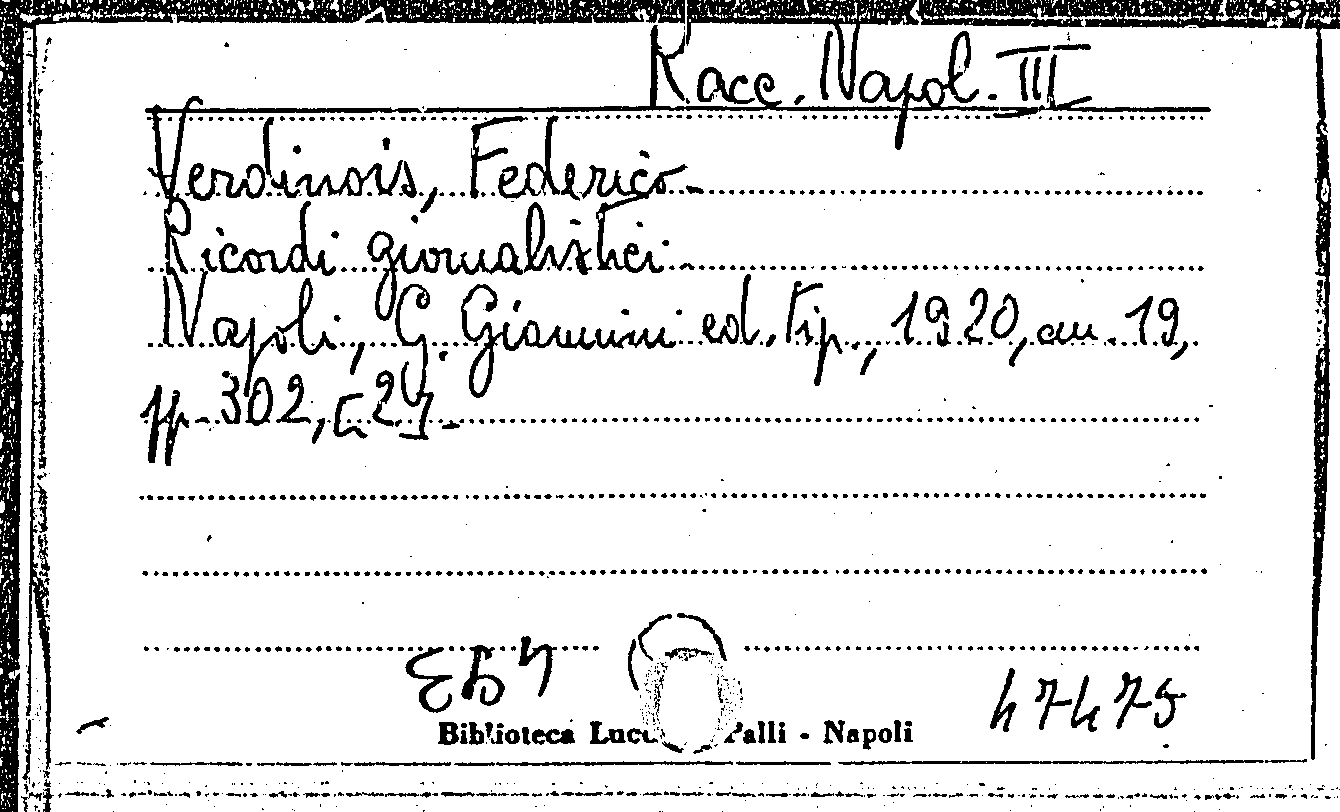 Racc. Napol. III
Verdinois, Federico.
Ricordi giornalistici.
Napoli, G. Giannini ed. tip., 1920, in 19,
pp. 302, [2].
47475
Biblioteca Lucc Palli - Napoli